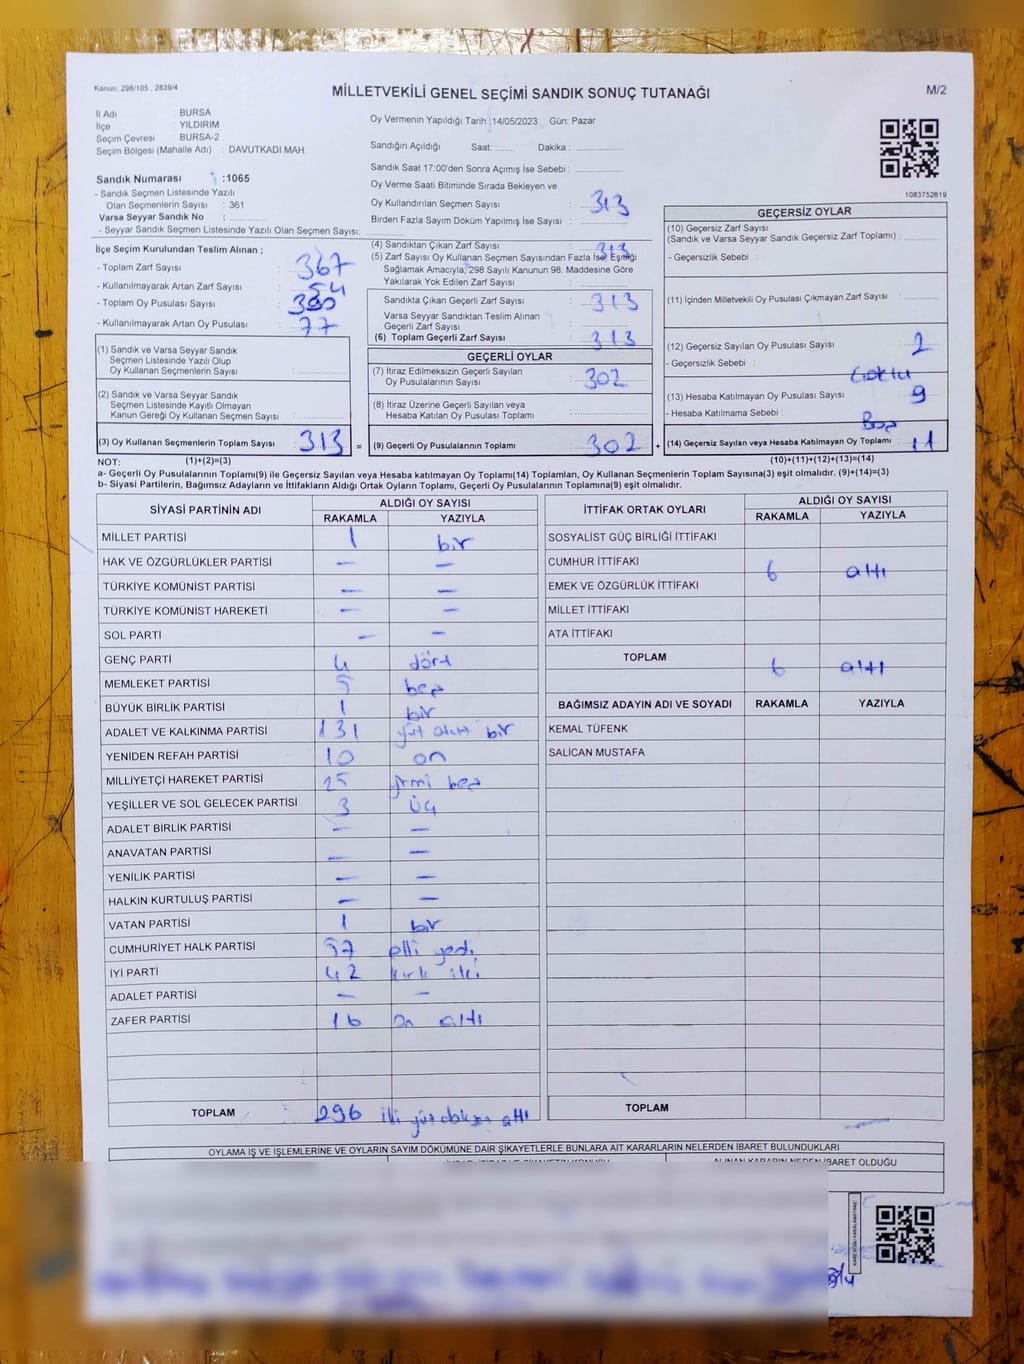 Kanun, 298/105 , 2839/4
MİLLETVEKİLİ GENEL SEÇİMİ SANDIK SONUÇ TUTANAĞI
M/2
İl Adı : BURSA
İlçe : YILDIRIM
Seçim Çevresi : BURSA-2
Seçim Bölgesi (Mahalle Adı) : DAVUTKADI MAH.
Sandık Numarası :1065
- Sandık Seçmen Listesinde Yazılı
Olan Seçmenlerin Sayısı : 361
Varsa Seyyar Sandık No :
- Seyyar Sandık Seçmen Listesinde Yazılı Olan Seçmen Sayısı:
Oy Vermenin Yapıldığı Tarih :14/05/2023 Gün: Pazar
Sandığın Açıldığı Saat: Dakika :
Sandık Saat 17:00'den Sonra Açımış İse Sebebi :
Oy Verme Saati Bitiminde Sırada Bekleyen ve
Oy Kullandırılan Seçmen Sayısı : 313
Birden Fazla Sayım Döküm Yapılmış İse Sayısı :
1083752619
İlçe Seçim Kurulundan Teslim Alınan ;
- Toplam Zarf Sayısı : 367
- Kullanılmayarak Artan Zarf Sayısı : 54
- Toplam Oy Pusulası Sayısı :
- Kullanılmayarak Artan Oy Pusulası : 77
(1) Sandık ve Varsa Seyyar Sandık
Seçmen Listesinde Yazılı Olup
Oy Kullanan Seçmenlerin Sayısı :
(2) Sandık ve Varsa Seyyar Sandık
Seçmen Listesinde Kayıtlı Olmayan
Kanun Gereği Oy Kullanan Seçmen Sayısı :
(3) Oy Kullanan Seçmenlerin Toplam Sayısı : 313 =
(4) Sandıktan Çıkan Zarf Sayısı : 313
(5) Zarf Sayısı Oy Kullanan Seçmen Sayısından Fazla İse, Eşitliği
Sağlamak Amacıyla, 298 Sayılı Kanunun 98. Maddesine Göre
Yakılarak Yok Edilen Zarf Sayısı :
Sandıkta Çıkan Geçerli Zarf Sayısı : 313
Varsa Seyyar Sandıktan Teslim Alınan
Geçerli Zarf Sayısı :
(6) Toplam Geçerli Zarf Sayısı : 313
GEÇERLİ OYLAR
(7) İtiraz Edilmeksizin Geçerli Sayılan
Oy Pusulalarının Sayısı : 302
(8) İtiraz Üzerine Geçerli Sayılan veya
Hesaba Katılan Oy Pusulaları Toplamı :
(9) Geçerli Oy Pusulalarının Toplamı : 302 +
GEÇERSİZ OYLAR
(10) Geçersiz Zarf Sayısı
(Sandık ve Varsa Seyyar Sandık Geçersiz Zarf Toplamı) :
- Geçersizlik Sebebi :
(11) İçinden Milletvekili Oy Pusulası Çıkmayan Zarf Sayısı :
(12) Geçersiz Sayılan Oy Pusulası Sayısı : 2
- Geçersizlik Sebebi :
(13) Hesaba Katılmayan Oy Pusulası Sayısı : 9
- Hesaba Katılmama Sebebi : Boş
(14) Geçersiz Sayılan veya Hesaba Katılmayan Oy Toplamı : 11
NOT: (1)+(2)=(3) (10)+(11)+(12)+(13)=(14)
a- Geçerli Oy Pusulalarının Toplamı(9) ile Geçersiz Sayılan veya Hesaba katılmayan Oy Toplamı(14) Toplamları, Oy Kullanan Seçmenlerin Toplam Sayısına(3) eşit olmalıdır. (9)+(14)=(3)
b- Siyasi Partilerin, Bağımsız Adayların ve İttifakların Aldığı Ortak Oyların Toplamı, Geçerli Oy Pusulalarının Toplamına(9) eşit olmalıdır.
SİYASİ PARTİNİN ADI ALDIĞI OY SAYISI
RAKAMLA YAZIYLA
MİLLET PARTİSİ 1 bir
HAK VE ÖZGÜRLÜKLER PARTİSİ — —
TÜRKİYE KOMÜNİST PARTİSİ — —
TÜRKİYE KOMÜNİST HAREKETİ — —
SOL PARTİ — —
GENÇ PARTİ 4 dört
MEMLEKET PARTİSİ 5 beş
BÜYÜK BİRLİK PARTİSİ 1 bir
ADALET VE KALKINMA PARTİSİ 131 yüz otuz bir
YENİDEN REFAH PARTİSİ 10 on
MİLLİYETÇİ HAREKET PARTİSİ 25 yirmi beş
YEŞİLLER VE SOL GELECEK PARTİSİ 3 üç
ADALET BİRLİK PARTİSİ — —
ANAVATAN PARTİSİ — —
YENİLİK PARTİSİ — —
HALKIN KURTULUŞ PARTİSİ — —
VATAN PARTİSİ 1 bir
CUMHURİYET HALK PARTİSİ 57 elli yedi
İYİ PARTİ 42 kırk iki
ADALET PARTİSİ — —
ZAFER PARTİSİ 16 on altı
TOPLAM 296 iki yüz doksan altı
İTTİFAK ORTAK OYLARI ALDIĞI OY SAYISI
RAKAMLA YAZIYLA
SOSYALİST GÜÇ BİRLİĞİ İTTİFAKI
CUMHUR İTTİFAKI 6 altı
EMEK VE ÖZGÜRLÜK İTTİFAKI
MİLLET İTTİFAKI
ATA İTTİFAKI
TOPLAM 6 altı
BAĞIMSIZ ADAYIN ADI VE SOYADI RAKAMLA YAZIYLA
KEMAL TÜFENK
SALİCAN MUSTAFA
TOPLAM
OYLAMA İŞ VE İŞLEMLERİNE VE OYLARIN SAYIM DÖKÜMÜNE DAİR ŞİKAYETLERLE BUNLARA AİT KARARLARIN NELERDEN İBARET BULUNDUKLARI
ALINAN KARARIN NEDEN İBARET OLDUĞU